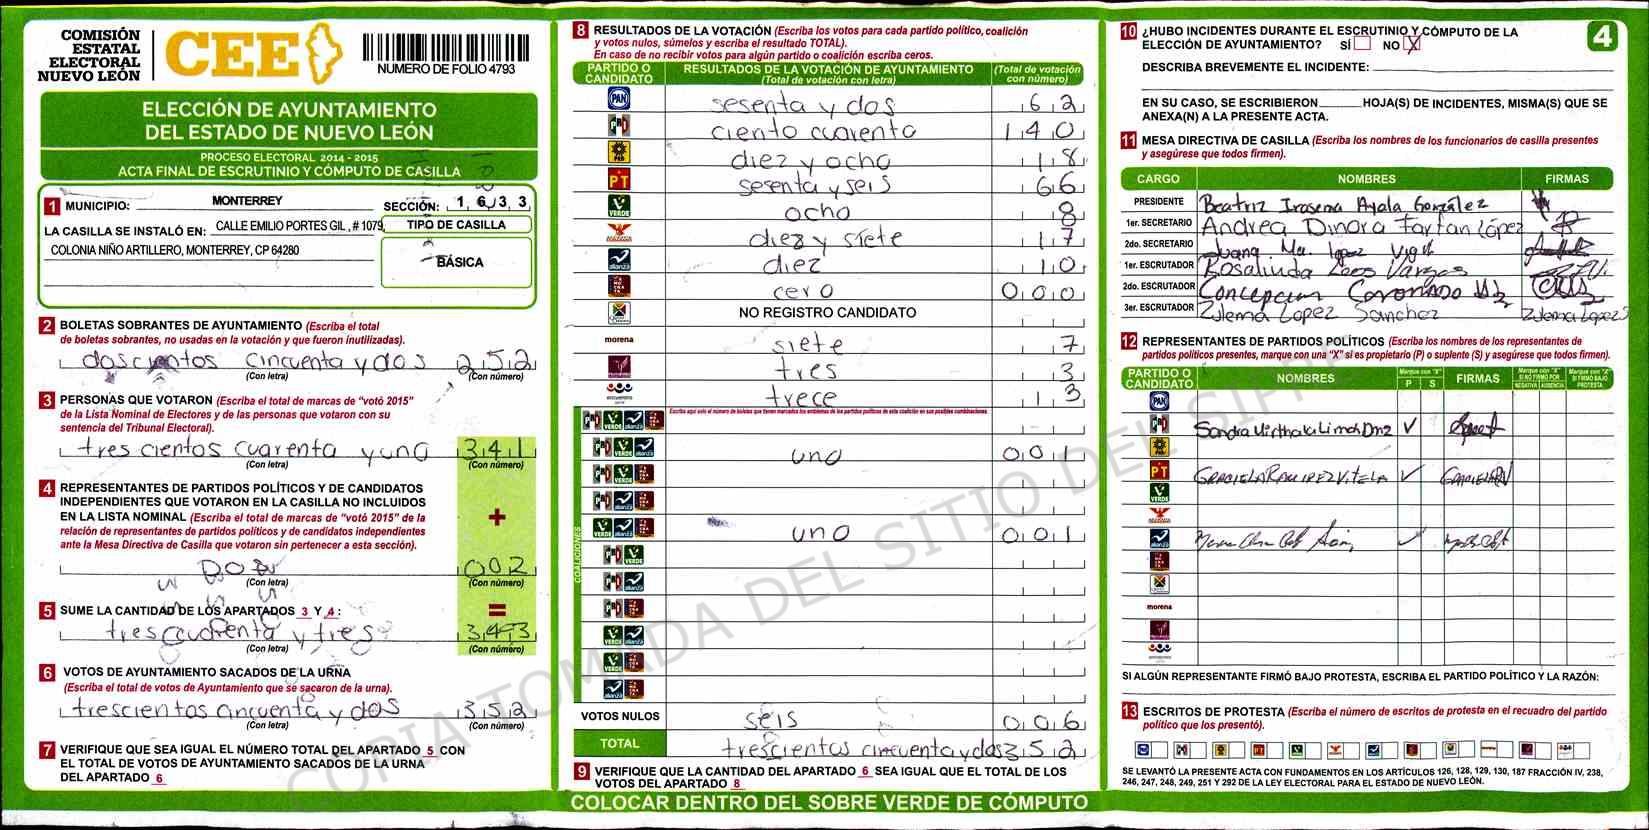 COMISIÓN
ESTATAL
ELECTORAL
NUEVO LEÓN
CEE
NUMERO DE FOLIO 4793
ELECCIÓN DE AYUNTAMIENTO
DEL ESTADO DE NUEVO LEÓN
PROCESO ELECTORAL 2014 - 2015
ACTA FINAL DE ESCRUTINIO Y CÓMPUTO DE CASILLA
1 MUNICIPIO: MONTERREY SECCIÓN: 1 6 3 3
LA CASILLA SE INSTALÓ EN: CALLE EMILIO PORTES GIL , # 1079,
COLONIA NIÑO ARTILLERO, MONTERREY, CP 64280
TIPO DE CASILLA
BÁSICA
2 BOLETAS SOBRANTES DE AYUNTAMIENTO (Escriba el total
de boletas sobrantes, no usadas en la votación y que fueron inutilizadas).
doscientos cincuenta y dos 252
(Con letra) (Con número)
3 PERSONAS QUE VOTARON (Escriba el total de marcas de "votó 2015"
de la Lista Nominal de Electores y de las personas que votaron con su
sentencia del Tribunal Electoral).
tres cientos cuarenta y uno 341
(Con letra) (Con número)
4 REPRESENTANTES DE PARTIDOS POLÍTICOS Y DE CANDIDATOS
INDEPENDIENTES QUE VOTARON EN LA CASILLA NO INCLUIDOS
EN LA LISTA NOMINAL (Escriba el total de marcas de "votó 2015" de la
relación de representantes de partidos políticos y de candidatos independientes
ante la Mesa Directiva de Casilla que votaron sin pertenecer a esta sección).
+
DOS 002
(Con letra) (Con número)
5 SUME LA CANTIDAD DE LOS APARTADOS 3 Y 4 :
=
tres cuarenta y tres 343
(Con letra) (Con número)
6 VOTOS DE AYUNTAMIENTO SACADOS DE LA URNA
(Escriba el total de votos de Ayuntamiento que se sacaron de la urna).
trescientos cincuenta y dos 352
(Con letra) (Con número)
7 VERIFIQUE QUE SEA IGUAL EL NÚMERO TOTAL DEL APARTADO 5 CON
EL TOTAL DE VOTOS DE AYUNTAMIENTO SACADOS DE LA URNA
DEL APARTADO 6
8 RESULTADOS DE LA VOTACIÓN (Escriba los votos para cada partido político, coalición
y votos nulos, súmelos y escriba el resultado TOTAL).
En caso de no recibir votos para algún partido o coalición escriba ceros.
PARTIDO O
CANDIDATO
RESULTADOS DE LA VOTACIÓN DE AYUNTAMIENTO
(Total de votación con letra)
(Total de votación
con número)
PAN sesenta y dos 62
PRD ciento cuarenta 140
PRD diez y ocho 18
PT sesenta y seis 66
VERDE ocho 8
diez y siete 17
alianza diez 10
cero 000
NO REGISTRO CANDIDATO
morena siete 7
tres 3
trece 13
Escriba aquí solo el número de boletas que tienen marcados los emblemas de los partidos políticos de esta coalición en sus posibles combinaciones.
COALICIONES
uno 001
uno 001
VOTOS NULOS seis 006
TOTAL trescientos cincuenta y dos 352
9 VERIFIQUE QUE LA CANTIDAD DEL APARTADO 6 SEA IGUAL QUE EL TOTAL DE LOS
VOTOS DEL APARTADO 8
COLOCAR DENTRO DEL SOBRE VERDE DE CÓMPUTO
4
10 ¿HUBO INCIDENTES DURANTE EL ESCRUTINIO Y CÓMPUTO DE LA
ELECCIÓN DE AYUNTAMIENTO? SÍ NO X
DESCRIBA BREVEMENTE EL INCIDENTE:
EN SU CASO, SE ESCRIBIERON HOJA(S) DE INCIDENTES, MISMA(S) QUE SE
ANEXA(N) A LA PRESENTE ACTA.
11 MESA DIRECTIVA DE CASILLA (Escriba los nombres de los funcionarios de casilla presentes
y asegúrese que todos firmen).
CARGO NOMBRES FIRMAS
PRESIDENTE Beatriz Irasema Ayala González
1er. SECRETARIO Andrea Dinora Farfan López
2do. SECRETARIO Juana Ma. lopez
1er. ESCRUTADOR Rosalinda Vargas
2do. ESCRUTADOR Concepcion Coronado
3er. ESCRUTADOR Zulema Lopez Sanchez Zulema Lopez S
12 REPRESENTANTES DE PARTIDOS POLÍTICOS (Escriba los nombres de los representantes de
partidos políticos presentes, marque con una "X" si es propietario (P) o suplente (S) y asegúrese que todos firmen).
PARTIDO O
CANDIDATO
NOMBRES
Marque con "X"
P S
FIRMAS
Marque con "X"
SI NO FIRMÓ POR
NEGATIVA AUSENCIA
Marque con "X"
SI FIRMÓ BAJO
PROTESTA
Sandra
GRACIELA RAMIREZ VITELA GRACIELA
morena
SI ALGÚN REPRESENTANTE FIRMÓ BAJO PROTESTA, ESCRIBA EL PARTIDO POLÍTICO Y LA RAZÓN:
13 ESCRITOS DE PROTESTA (Escriba el número de escritos de protesta en el recuadro del partido
político que los presentó).
SE LEVANTÓ LA PRESENTE ACTA CON FUNDAMENTOS EN LOS ARTÍCULOS 126, 128, 129, 130, 187 FRACCIÓN IV, 238,
246, 247, 248, 249, 251 Y 292 DE LA LEY ELECTORAL PARA EL ESTADO DE NUEVO LEÓN.
COPIA TOMADA DEL SITIO DEL SIPRE